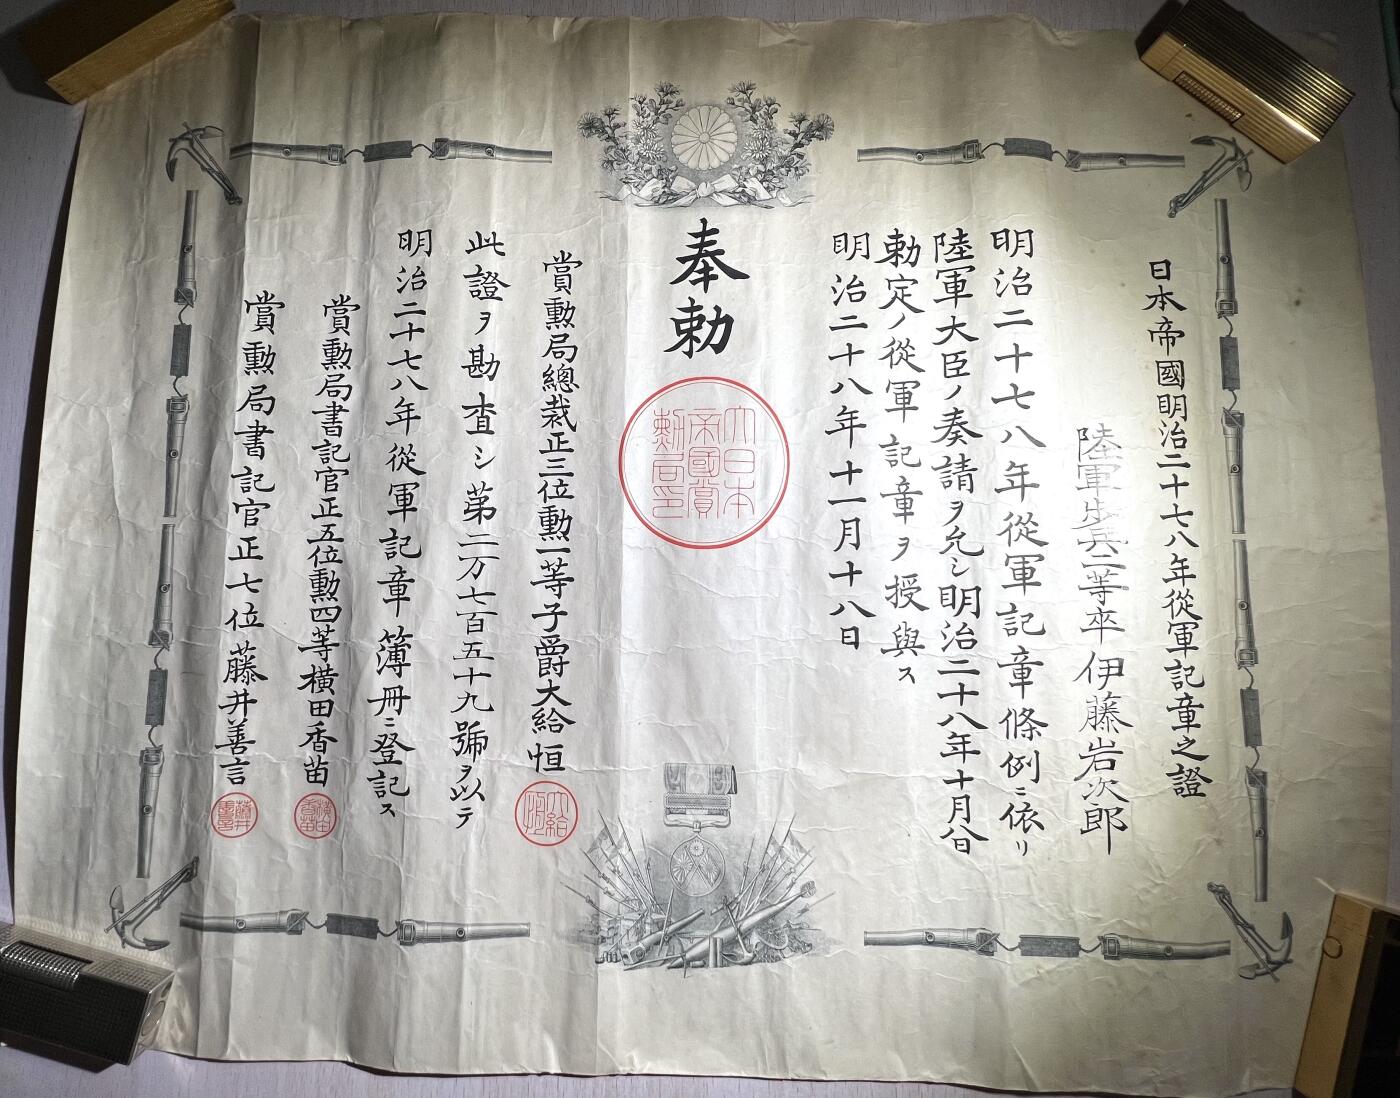 日本帝國明治二十七八年從軍記章之證
陸軍歩兵二等卒伊藤岩次郎
明治二十七八年從軍記章條例ニ依リ
陸軍大臣ノ奏請ヲ允シ明治二十八年十月
勅定ノ從軍記章ヲ授與ス
明治二十八年十一月十八日
奉勅
大日本
帝國賞
勲局印
賞勲局總裁正三位勲一等子爵大給恒
此證ヲ勘査シ第二万七百五十九號ヲ以テ
明治二十七八年從軍記章簿冊ニ登記ス
賞勲局書記官正五位勲四等横田香苗
賞勲局書記官正七位藤井善言